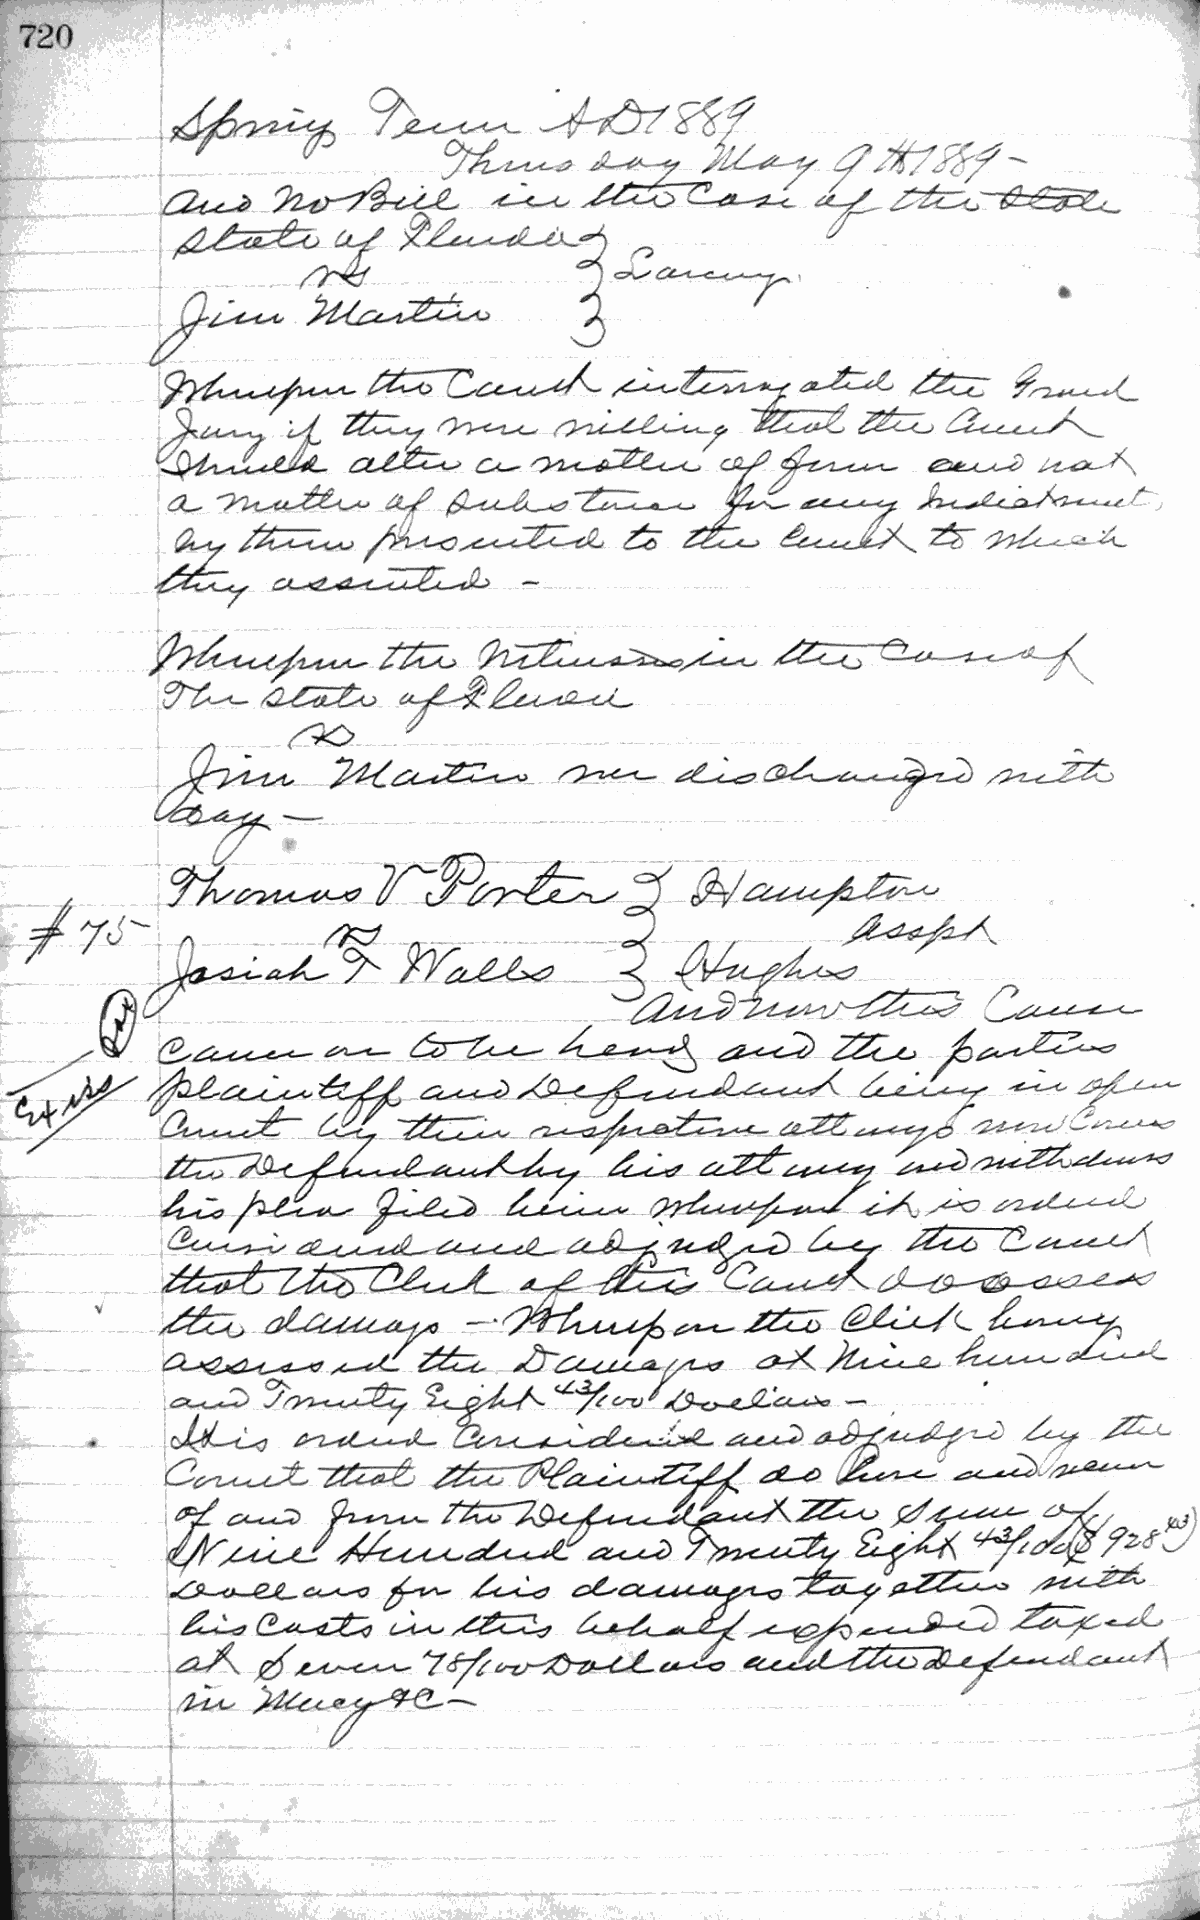 720
Spring Term A D 1889
Thursday May 9th 1889 -
and No Bill in the Case of the State
State of Florida }
vs } Larceny.
Jim Martin }
Whereupon the Court interrogated the Grand
Jury if they were willing that the Court
Should alter a matter of form and not
a matter of substance for any Indictment
by them presented to the Court to which
they assented -
Whereupon the Witnesses in the Case of
The State of Florida
vs
Jim Martin were discharged with
day -
Thomas V Porter } Hampton
# 75 vs } Asspt
Josiah T Walls } Hughes
And now this Cause
came on to be heard and the parties
Plaintiff and Defendant being in open
Court by their respective attorneys now Comes
the Defendant by his attorney and withdraws
his plea filed herein Whereupon it is ordered
Considered and adjudged by the Court
that the Clerk of this Court do assess
the damages - Whereupon the Clerk having
assessed the Damages at Nine hundred
and Twenty Eight 43/100 Dollars -
It is ordered Considered and adjudged by the
Court that the Plaintiff do have and recover
of and from the Defendant the Sum of
Nine Hundred and Twenty Eight 43/100 ($928 43)
Dollars for his damages together with
his Costs in this behalf expended taxed
at Seven 78/100 Dollars and the Defendant
in Mercy &C -